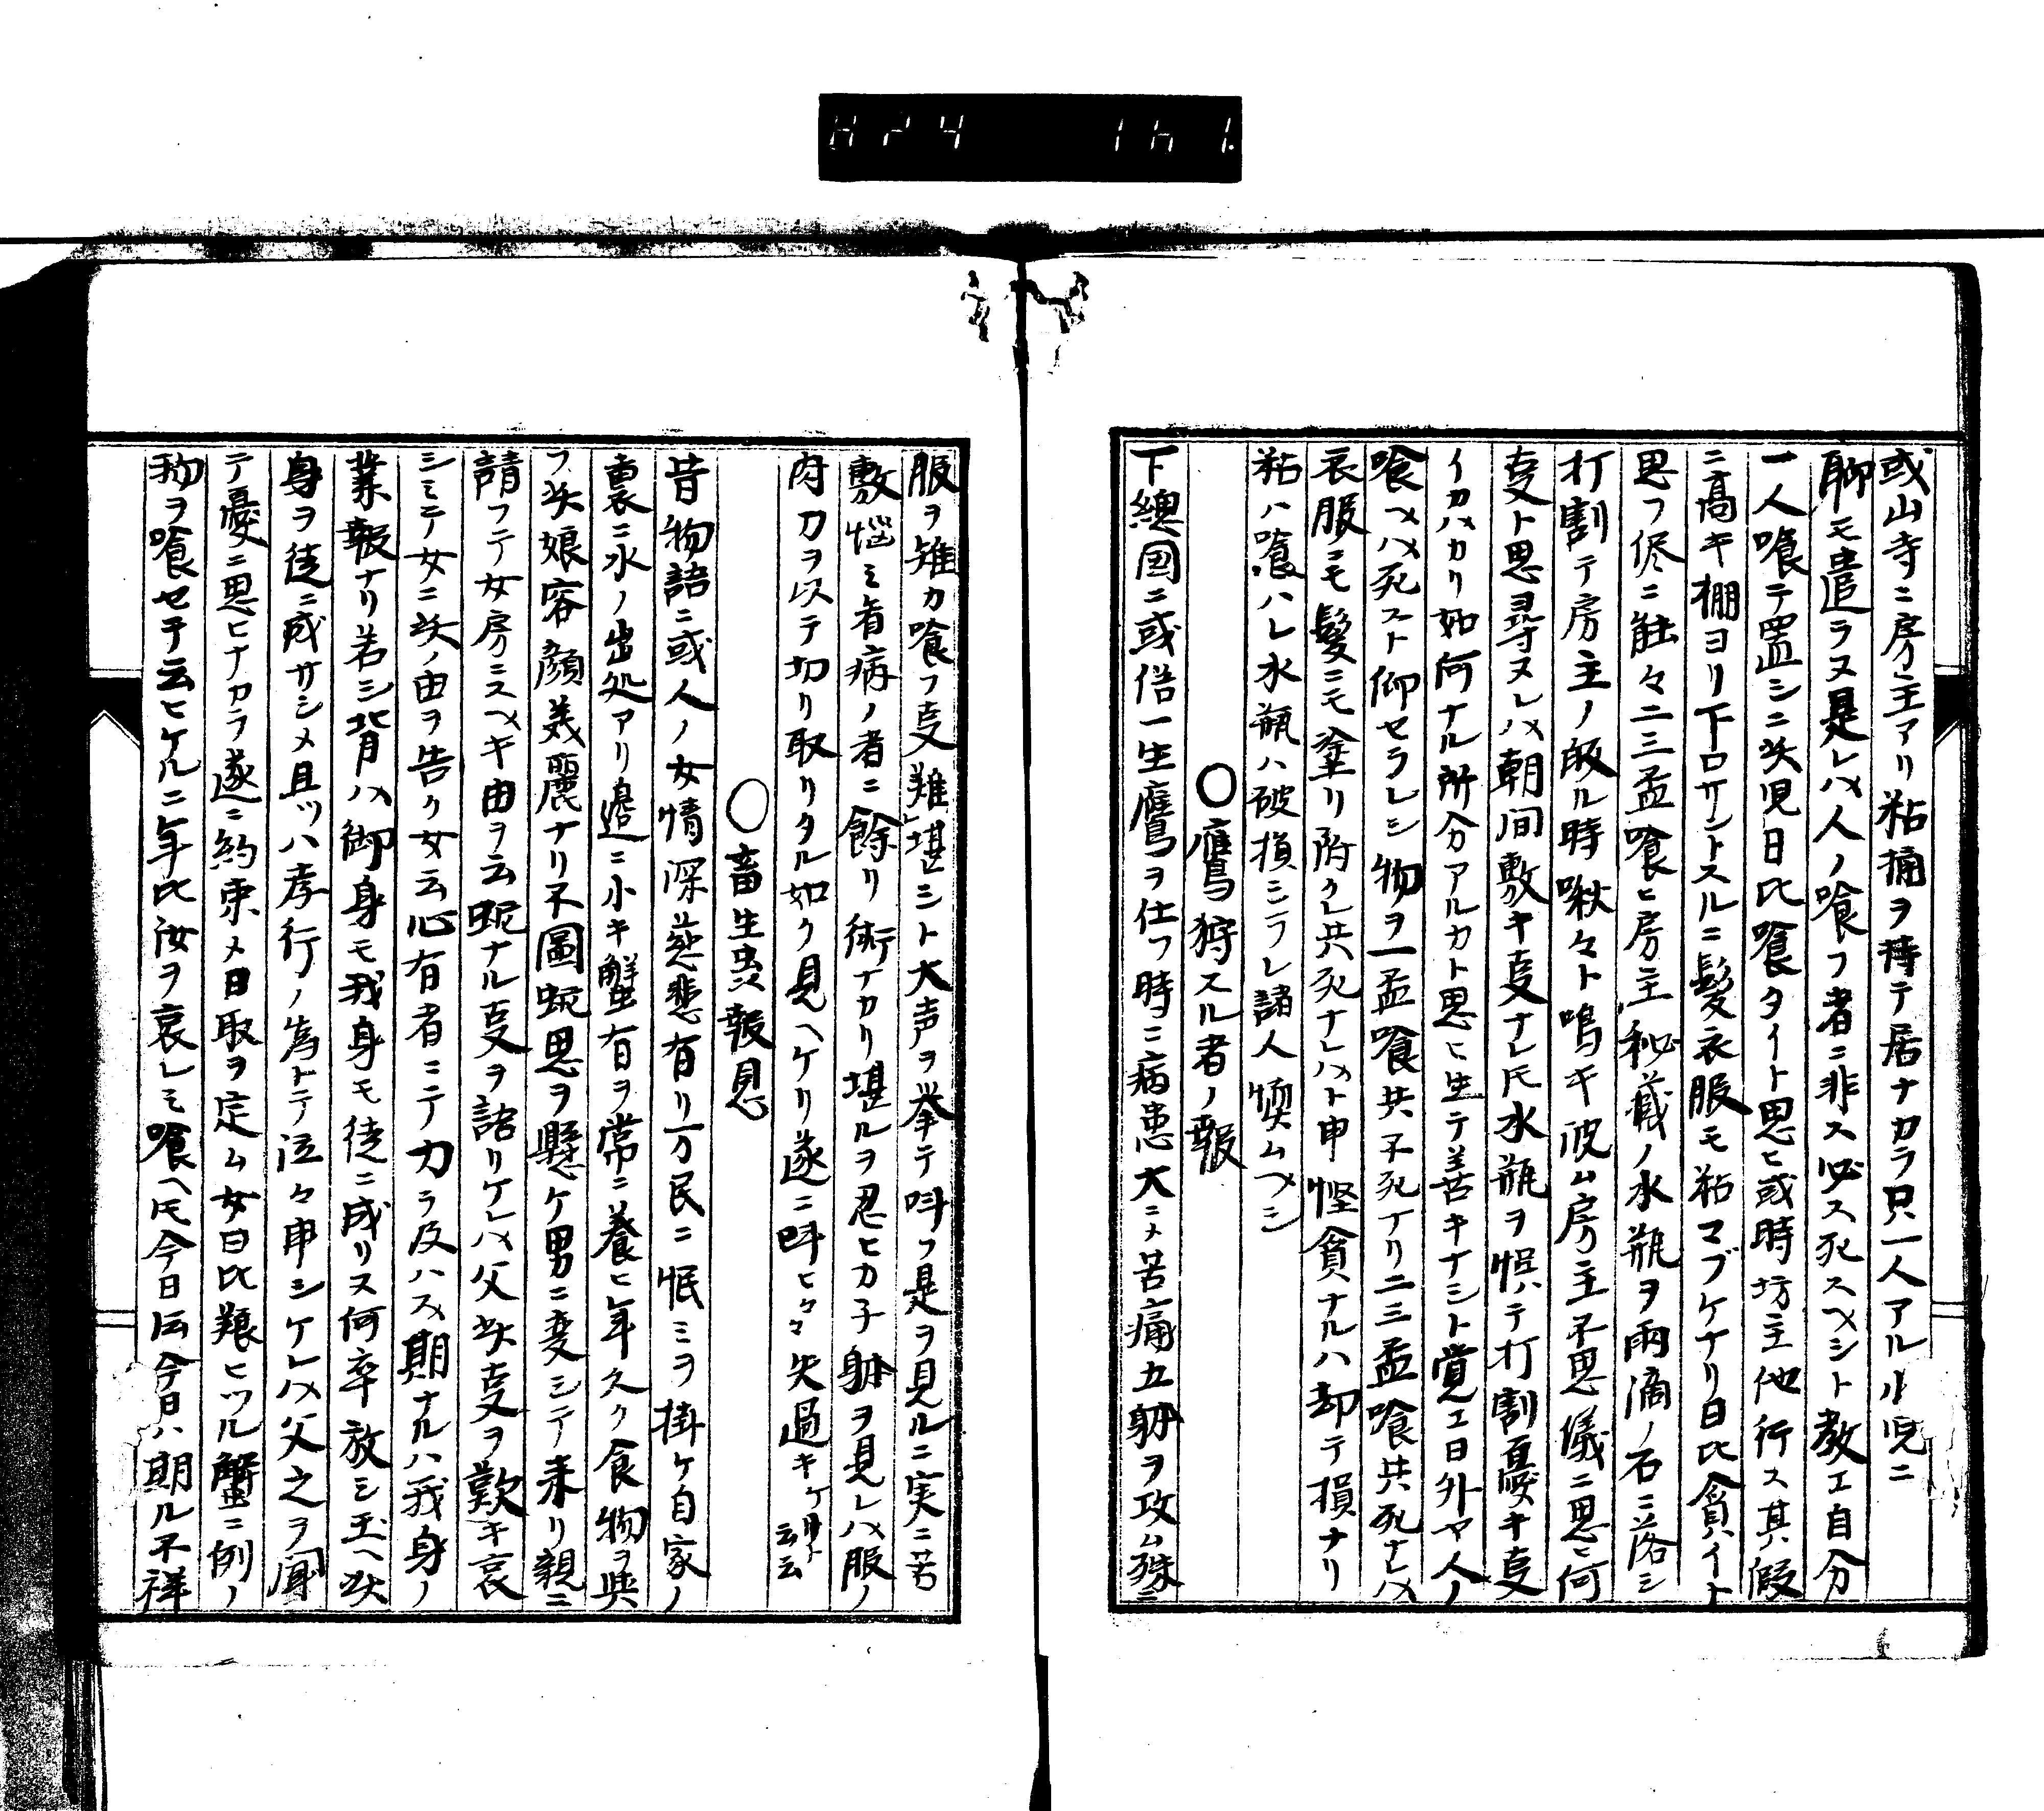 或山寺ニ房主アリ粘桶ヲ持テ居ナカラ只一人アル小児ニ
聊モ遣ラヌ是レハ人ノ喰フ者ニ非ス必ス死スヘシト教エ自分
一人喰テ置シニ此児日比喰タイト思ヒ或時坊主他行ス其ハ假
ニ高キ棚ヨリ下ロサントスルニ髪衣服モ粘マブケナリ日比貪イト
思フ侭ニ能々二三盃喰ヒ房主秘蔵ノ水瓶ヲ雨滴ノ石ニ落シ
打割テ房主ノ皈ル時啾々ト鳴キ彼ム房主不思儀ニ思ヒ何
叓ト思尋ヌレハ朝间敷キ叓ナレ𪜈水瓶ヲ悞ハテ打割憂キ叓
イカハカリ如何ナル所分アルカト思ヒ生テ善キナシト覚エ日外ヤ人ノ
喰ヘハ死スト仰セラレシ物ヲ一盃喰共不死ナリ二三盃喰共死ナレハ
衣服ニモ髪ニモ塗リ附クレ共死ナレハト申慳貪ナルハ却テ損ナリ
粘ハ喰ハレ水瓶ハ破損ミラレ諸人懊ムヘシ
〇鷹狩スル者ノ報
下總国ニ或俗一生鷹ヲ仕フ時ニ病患大ニメ苦痛五躰ヲ攻ム殊ニ
服ヲ雉カ喰フ叓難堪シト大声ヲ挙テ呌フ是ヲ見ルニ実ニ苦
敷悩ミ看病ノ者ニ餘リ術ナカリ堪ルヲ忍ヒカ子躰ヲ見レハ服ノ
肉刀ヲ以テ切リ取リタル如ク見ヘケリ遂ニ呌ヒクマ失過キケ云云
〇畜生虫報恩
昔物語ニ或人ノ女情深慈悲有リ万民ニ恨ミヲ掛ケ自家ノ
裏ニ水ノ出処アリ邉ニ小キ蟹有ヲ常ニ養ヒ年久ク食物ヲ與
フ此娘容顔美麗ナリ不圖蛇思ヲ懸ケ男ニ変シテ来リ親ニ
請フテ女房ニスヘキ由ヲ云蛇ナル叓ヲ語リケレハ父此叓ヲ歎キ哀
シミテ女ニ此ノ由ヲ告ク女云心有者ニテ力ラ及ハス期ナルハ我身ノ
業報ナリ若シ背ハ御身モ我身モ徒ニ成リス何卒放シ玉ヘ此
身ヲ徒ニ成サシメ且ツハ孝行ノ為トテ泣々申シケレハ父之ヲ聞
テ憂ニ思ヒナカラ遂ニ約束メ日取ヲ定ム女日比飼ヒツル蟹ニ例ノ
物ヲ喰セテ云ヒケルニ年比汝ヲ哀レミ喰ヘ𪜈今日伝今日ハ期ル不祥